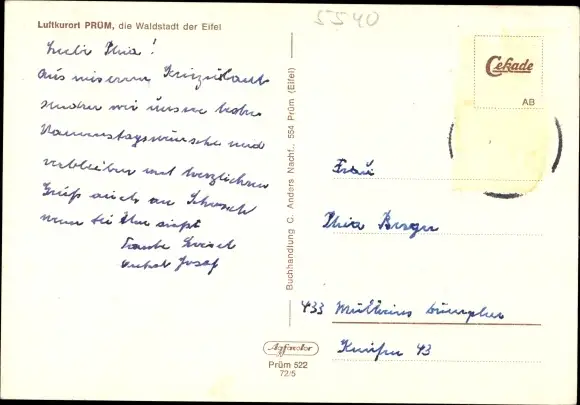 Luftkurort PRÜM, die Waldstadt der Eifel
5540
Liebe Thea!
Aus unserem Kurzurlaub
senden wir unsere
Namenstagswünsche und
verbleiben mit herzlichen
Gruß auch an
wenn Sie Ihn sieht
Tante
Onkel Josef
Buchhandlung C. Anders Nachf., 554 Prüm (Eifel)
Cekade
AB
Frau
Thea Berger
433 Mülheim Dümpten
43
Agfacolor
Prüm 522
72/5